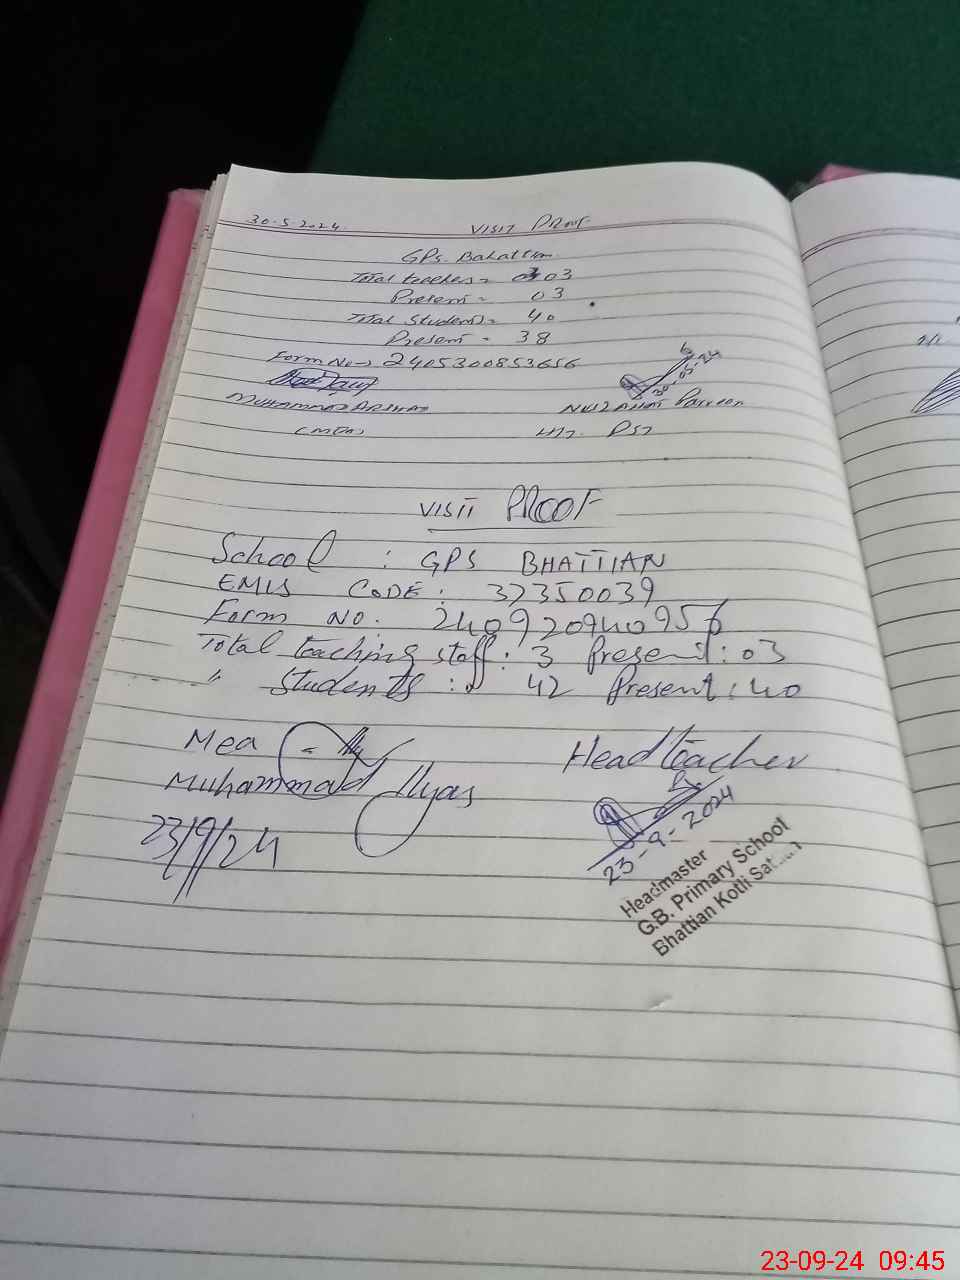 30-5-2024 VISIT PROOF
GPS Bahattian
Total teachers = 03
Present = 03
Total Students = 40
Present = 38
Form No- 2405300853656
30-05-24
MUHAMMAD ARSHAD Parveen
VISIT PROOF
School : GPS BHATTIAN
EMIS CODE : 37350039
Form NO. 240920940956
Total teaching staff : 3 Present : 03
" Students : 42 Present : 40
Mea Headteacher
Muhammad Ilyas
23/9/24 23-9-2024
Headmaster
G.B. Primary School
Bhattian Kotli
23-09-24 09:45